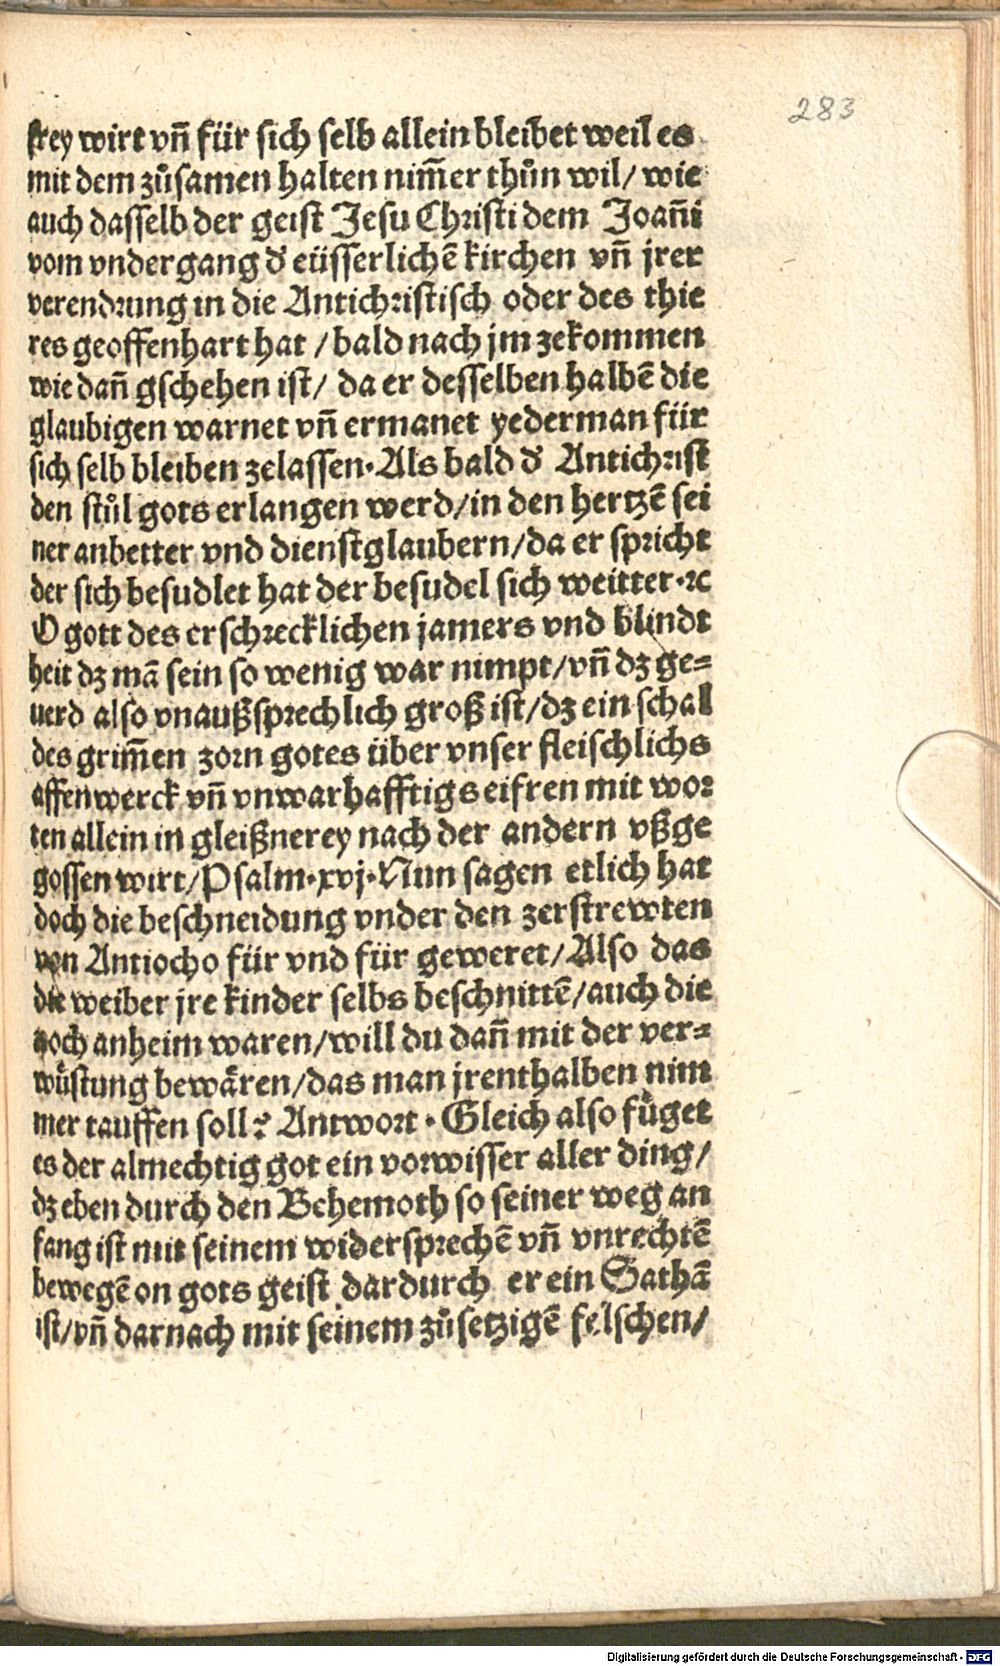 283
frey wirt vñ für sich selb allein bleibet weil es
mit dem zůsamen halten nim̃er thůn wil/ wie
auch dasselb der geist Jesu Christi dem Joañi
vom vndergang d' eüsserlichẽ kirchen vñ jrer
verendrung in die Antichristisch oder des thie
res geoffenhart hat / bald nach jm zekommen
wie dañ gschehen ist/ da er desselben halbẽ die
glaubigen warnet vñ ermanet yederman für
sich selb bleiben zelassen. Als bald d' Antichrist
den stůl gots erlangen werd/in den hertzẽ sei
ner anbetter vnd dienstglaubern/da er spricht
der sich besudlet hat der besudel sich weitter.⁊c
O gott des erschrecklichen jamers vnd blindt
heit dz mã sein so wenig war nimpt/vñ dz ge=
uerd also vnaußsprechlich groß ist/dz ein schal
des grim̃en zorn gotes über vnser fleischlichs
affenwerck vñ vnwarhafftigs eifren mit wor
ten allein in gleißnerey nach der andern vßge
gossen wirt/Psalm.xvj.Nun sagen etlich hat
doch die beschneidung vnder den zerstrewten
von Antiocho für vnd für geweret/Also das
die weiber jre kinder selbs beschnittẽ/auch die
noch anheim waren/will du dañ mit der ver=
wůstung bewären/das man jrenthalben nim
mer tauffen soll? Antwort. Gleich also fůget
es der almechtig got ein vorwisser aller ding/
dz eben durch den Behemoth so seiner weg an
fang ist mit seinem widersprechẽ vñ vnrechtẽ
bewegẽ on gots geist dardurch er ein Sathã
ist/vñ darnach mit seinem zůsetzigẽ felschen/
Digitalisierung gefördert durch die Deutsche Forschungsgemeinschaft - DFG